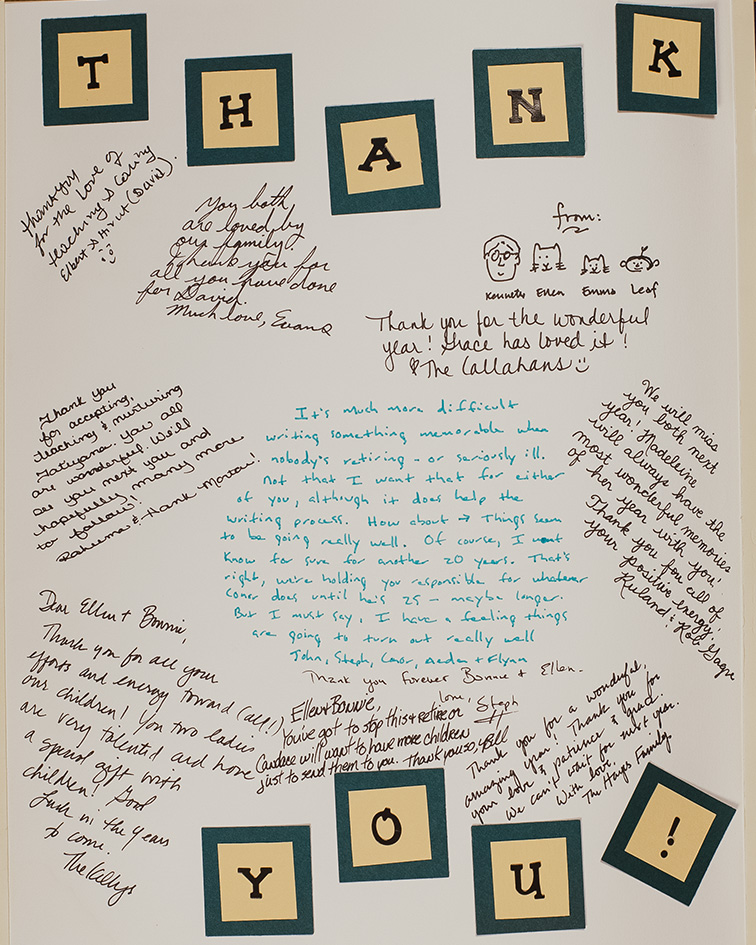 THANK
Thank you
for the love of
teaching & caring
Elbert & Hirut (David).
You both
are loved by
our family
Thank you for
all you have done
for David.
Much love, Evans
from:
Kenneth Ellen Emma Leaf
Thank you for the wonderful
year! Grace has loved it!
The Callahans
Thank you
for accepting,
teaching & nurturing
Tatyana. You all
are wonderful. We'll
see you next year and
hopefully many more
to follow!
& Hank
It's much more difficult
writing something memorable when
nobody's retiring - or seriously ill.
Not that I want that for either
of you, although it does help the
writing process. How about → Things seem
to be going really well. Of course, I wont
know for sure for another 20 years. That's
right, we're holding you responsible for whatever
Conor does until he's 25 - maybe longer.
But I must say, I have a feeling things
are going to turn out really well
John, Steph, Conor, Aedan + Flynn
Thank you forever Bonnie + Ellen.
love, Steph
We will miss
you both next
year! Madeleine
will always have the
most wonderful memories
of her year with you!
Thank you for all of
your positive energy,
& Rob Gagne
Dear Ellen + Bonnie,
Thank you for all your
efforts and energy toward (all!)
our children! You two ladies
are very talented and have
a special gift with
children! Good
Luck in the years
to come.
The
Ellen & Bonnie,
You've got to stop this & retire or
Candace will want to have more children
just to send them to you. Thank you so,
Thank you for a wonderful,
amazing year! Thank you for
your love & patience &
We can't wait for next year.
With love,
The Hayes Family
YOU!